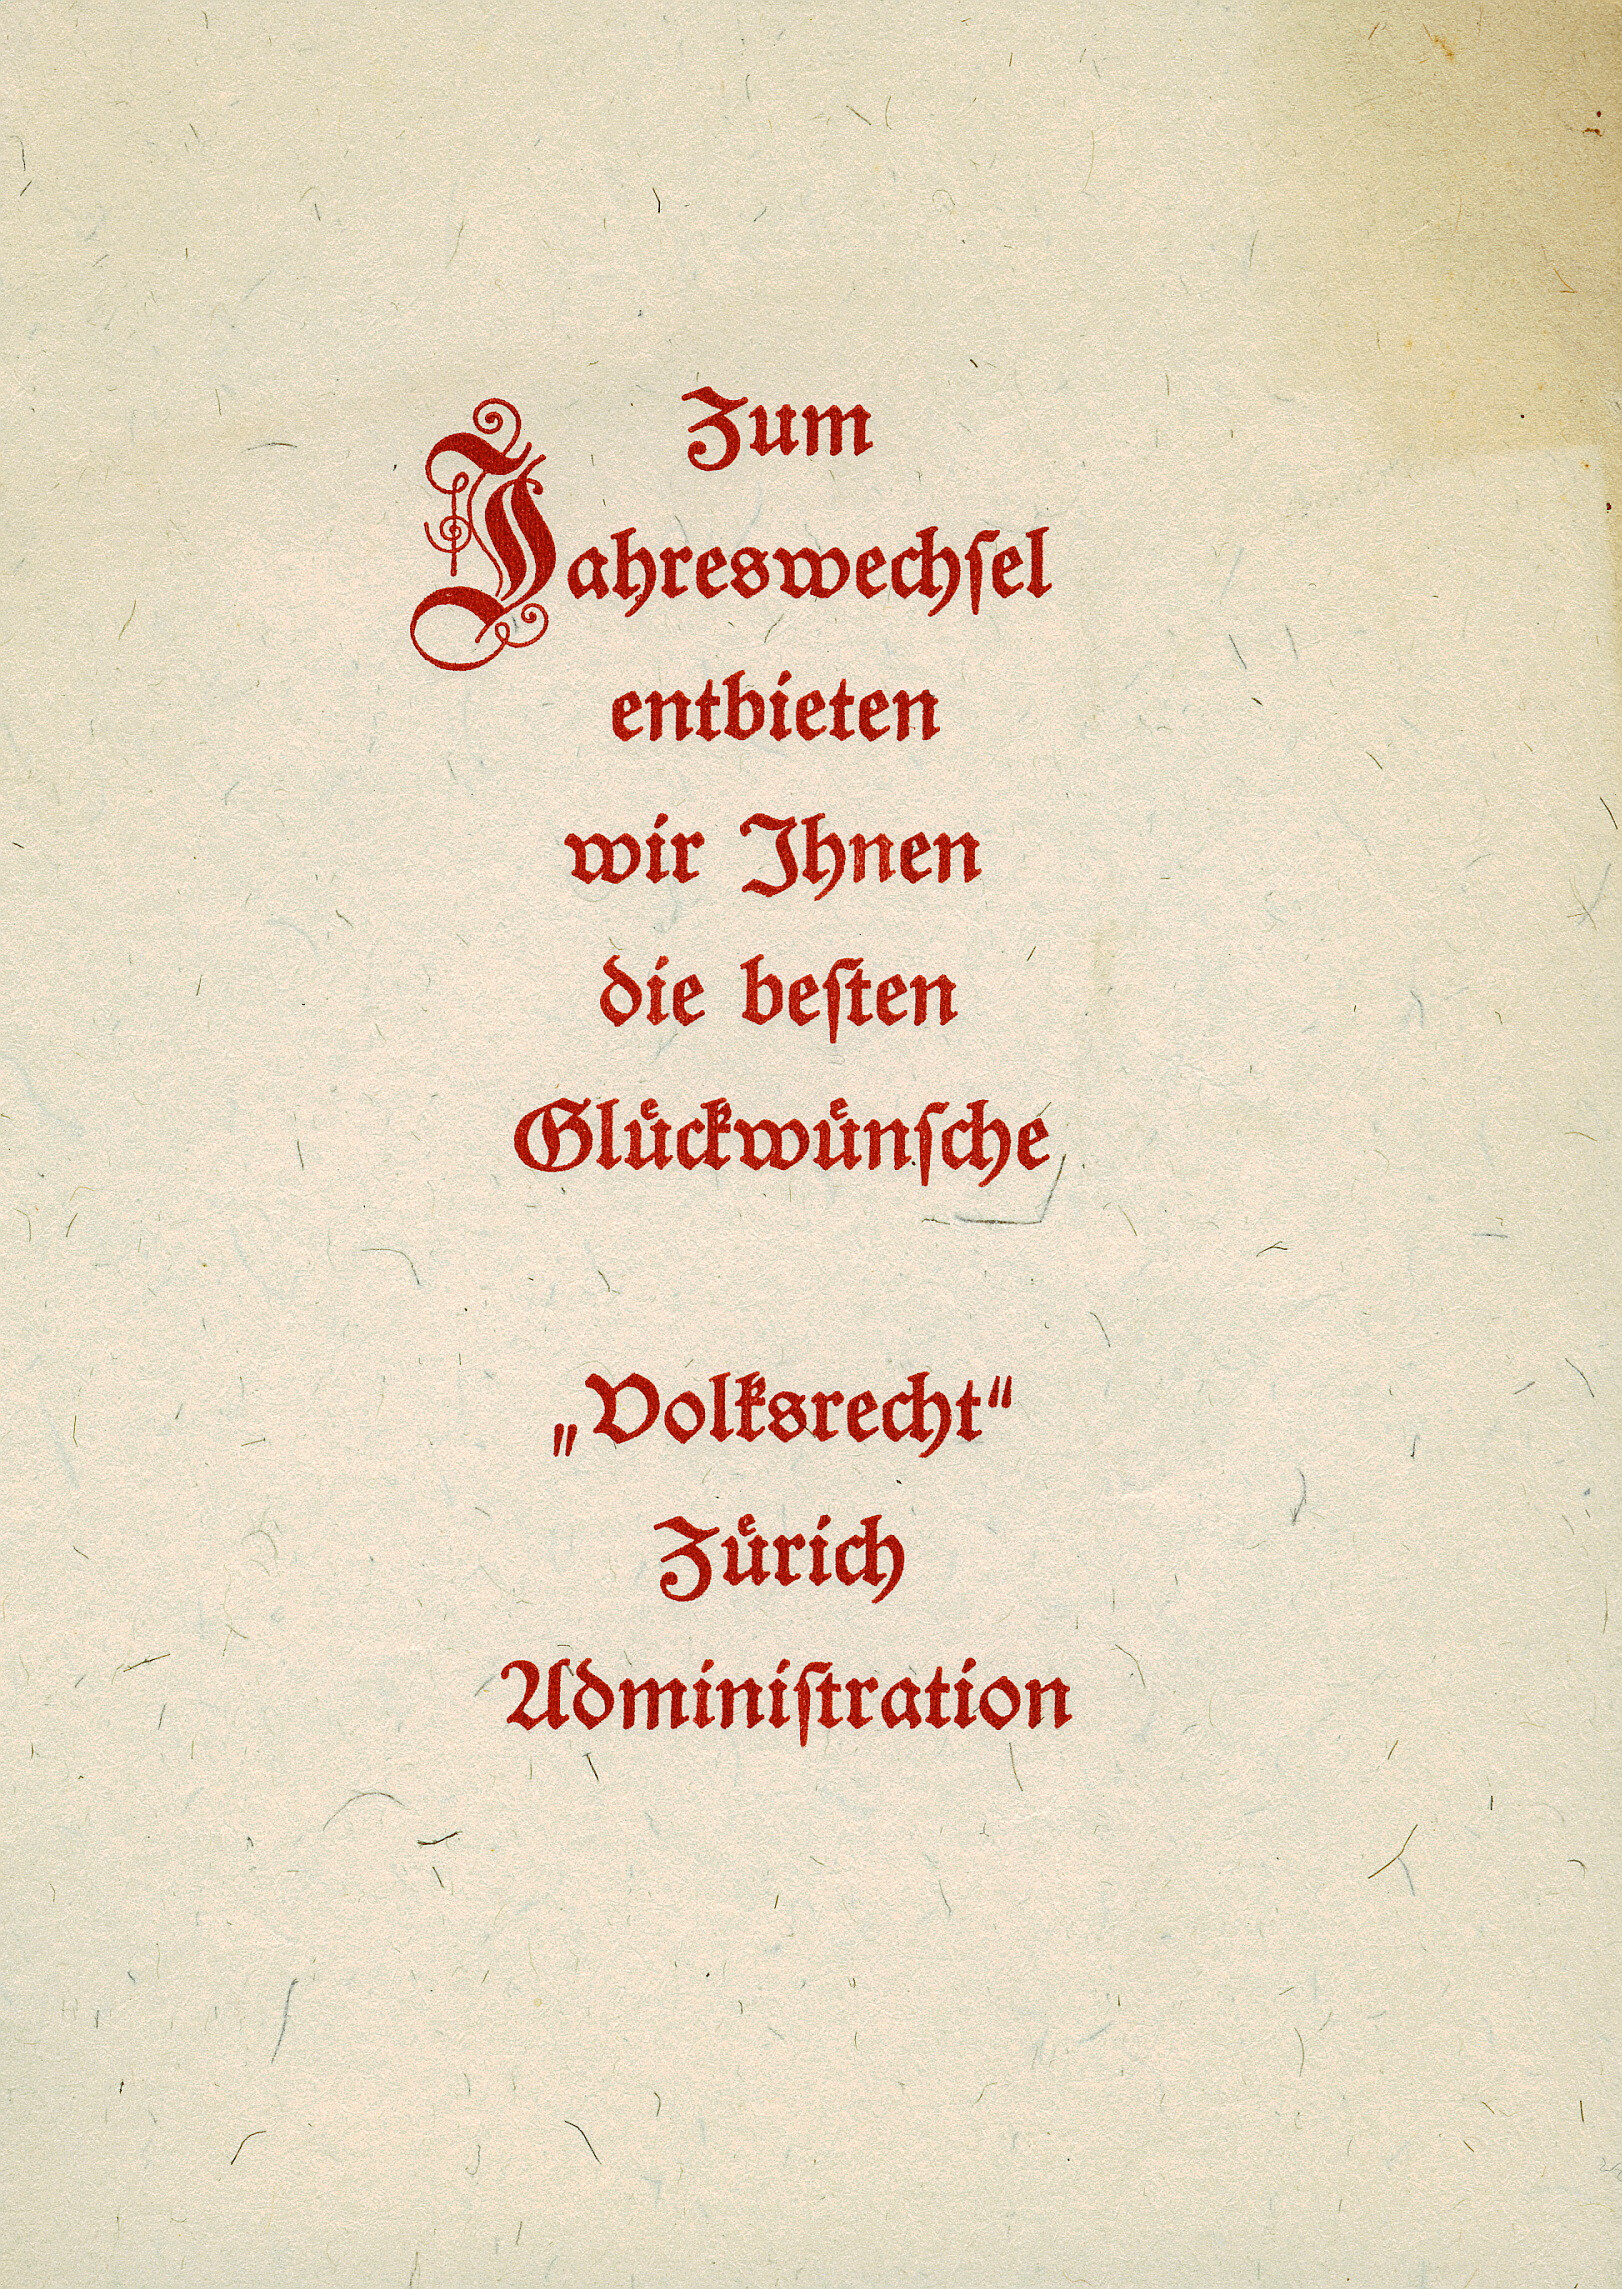 Zum
Jahreswechſel
entbieten
wir Ihnen
die beſten
Gluͤckwuͤnſche
„Volksrecht“
Zuͤrich
Adminiſtration